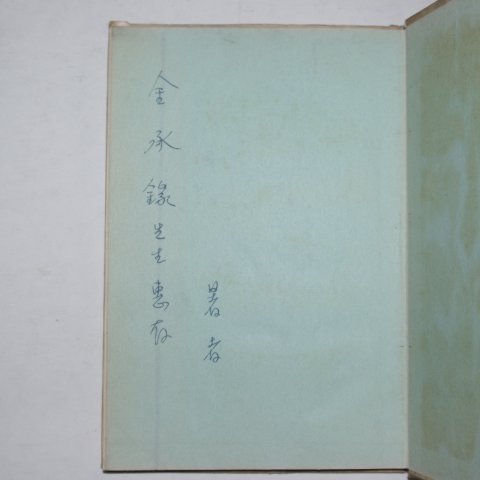 金承錄先生惠存
著者